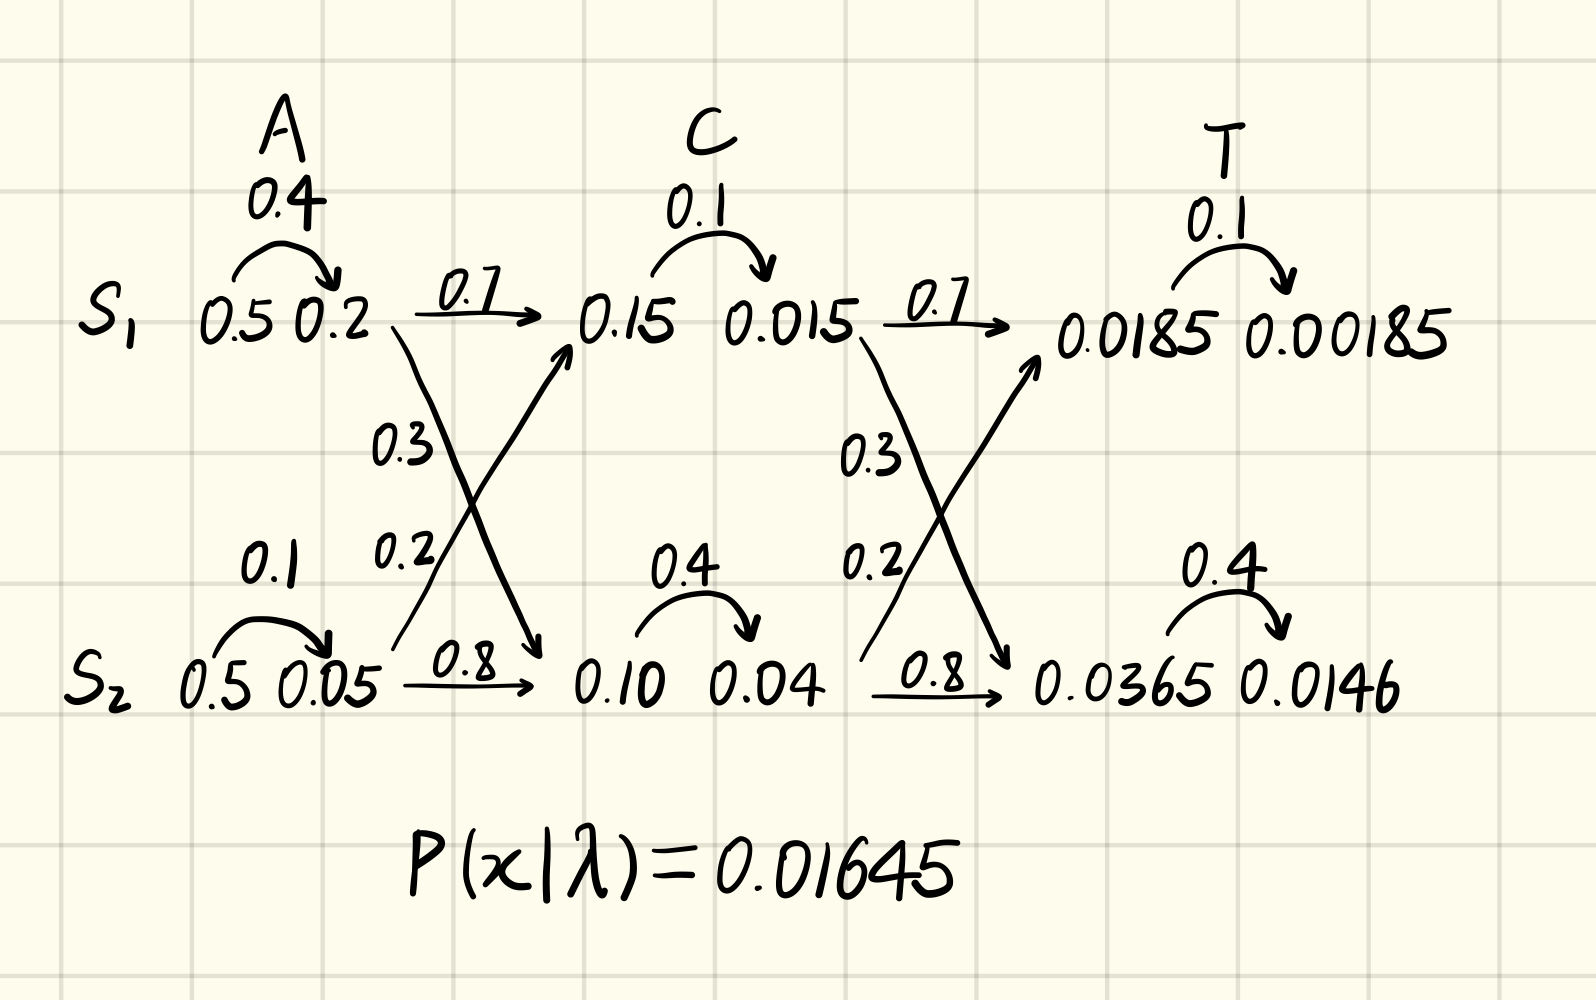 A C T
0.4 0.1 0.1
S₁ 0.5 0.2 0.7 0.15 0.015 0.7 0.0185 0.00185
0.3 0.3
0.2 0.2
0.1 0.4 0.4
S₂ 0.5 0.05 0.8 0.10 0.04 0.8 0.0365 0.0146
P(x|λ)=0.01645